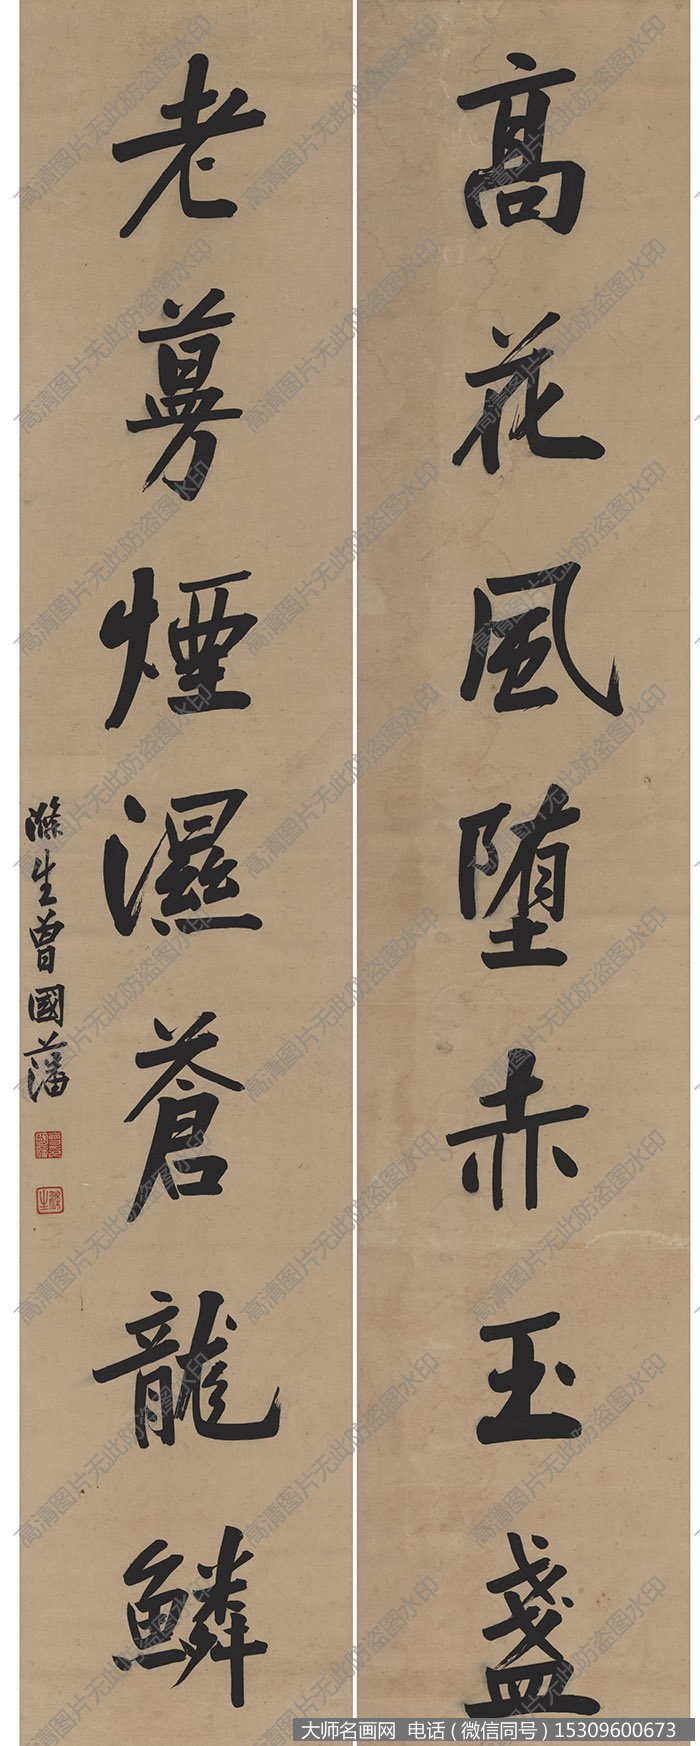 高花風堕赤玉盞
老蔓煙濕蒼龍鱗
滌生曾國藩
高清图片无此防盗图水印
大师名画网 电话（微信同号）15309600673